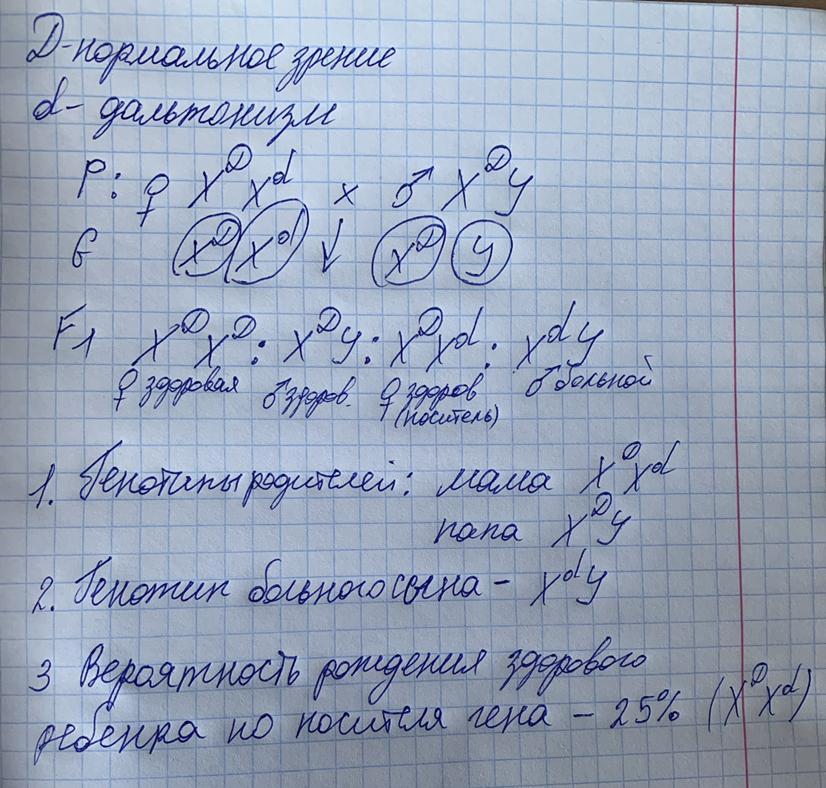 D-нормальное зрение
d- дальтонизм
P: ♀ X^D X^d × ♂ X^D Y
G X^D X^d ↓ X^D Y
F1 X^D X^D : X^D Y : X^D X^d : X^d Y
♀ здоровая ♂ здоров. ♀ здоров ♂ больной
(носитель)
1. Генотипы родителей: мама X^D X^d
папа X^D Y
2. Генотип больного сына - X^d Y
3 Вероятность рождения здорового
ребенка но носителя гена - 25% (X^D X^d)